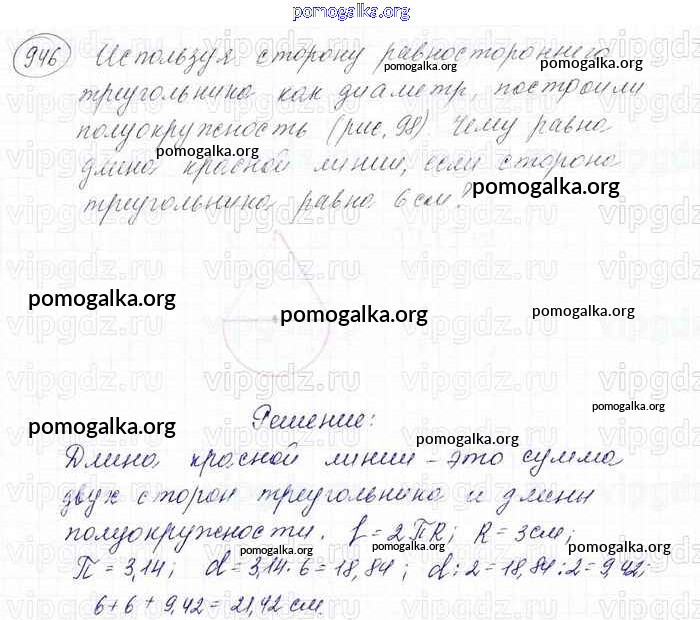 pomogalka.org
946 Используя сторону равностороннего
pomogalka.org
треугольника как диаметр, построили
pomogalka.org
полуокружность (рис. 98) Чему равна
pomogalka.org
длина красной линии, если сторона
pomogalka.org
треугольника равна 6 см?
vipgdz.ru
pomogalka.org
pomogalka.org
pomogalka.org
pomogalka.org
Решение:
pomogalka.org
pomogalka.org
Длина красной линии – это сумма
двух сторон треугольника и длины
pomogalka.org
полуокружности. l = 2πR; R = 3 см;
pomogalka.org pomogalka.org pomogalka.org
π = 3,14; d = 3,14 · 6 = 18,84; d : 2 = 18,84 : 2 = 9,42;
6 + 6 + 9,42 = 21,42 см.